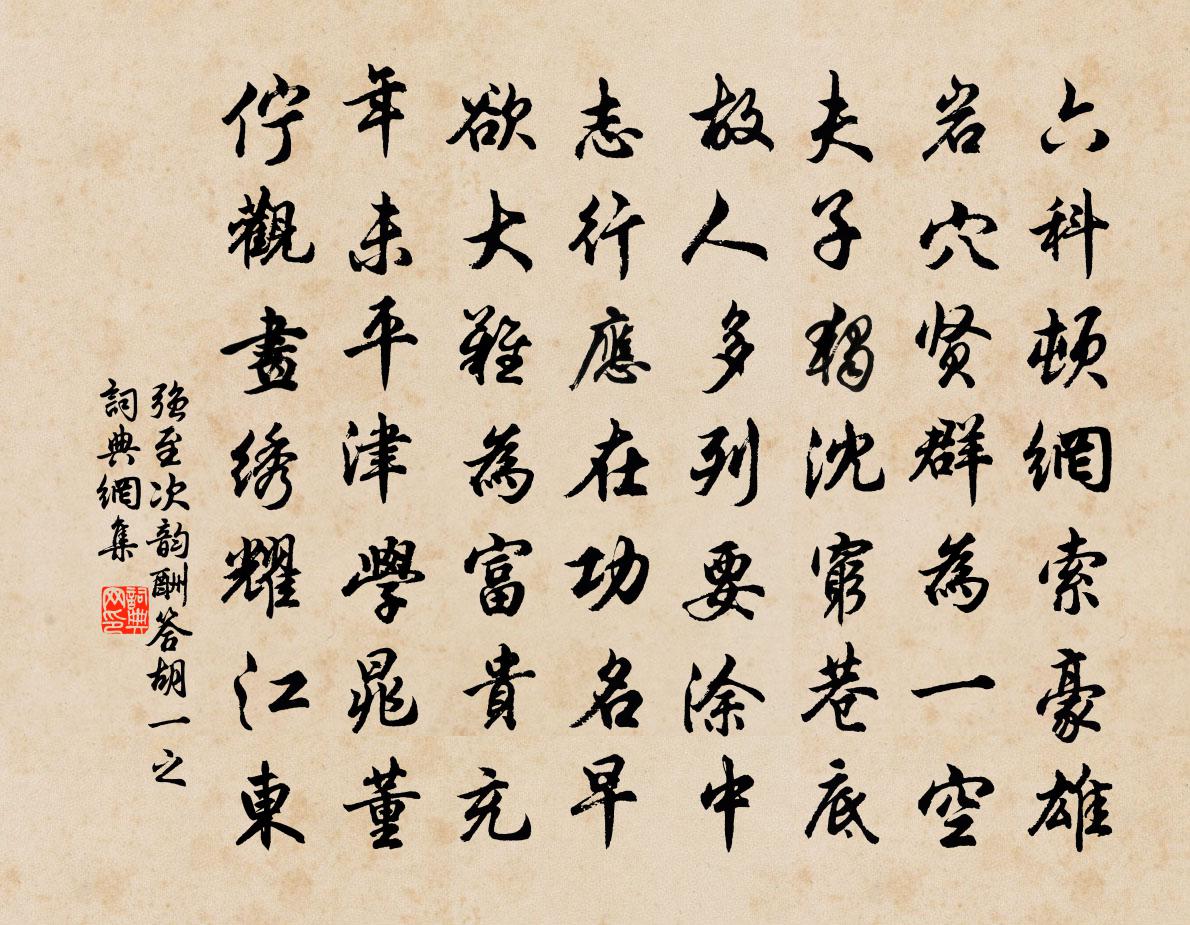 六科頓網索豪雄
岩穴贤群為一空
夫子獨沈窮巷底
故人多列要涂中
志行應在功名早
欲大難為富貴充
年未平津學晁董
佇觀晝绣耀江東
强至次韵酬答胡一之
詞典網集
詞典网印